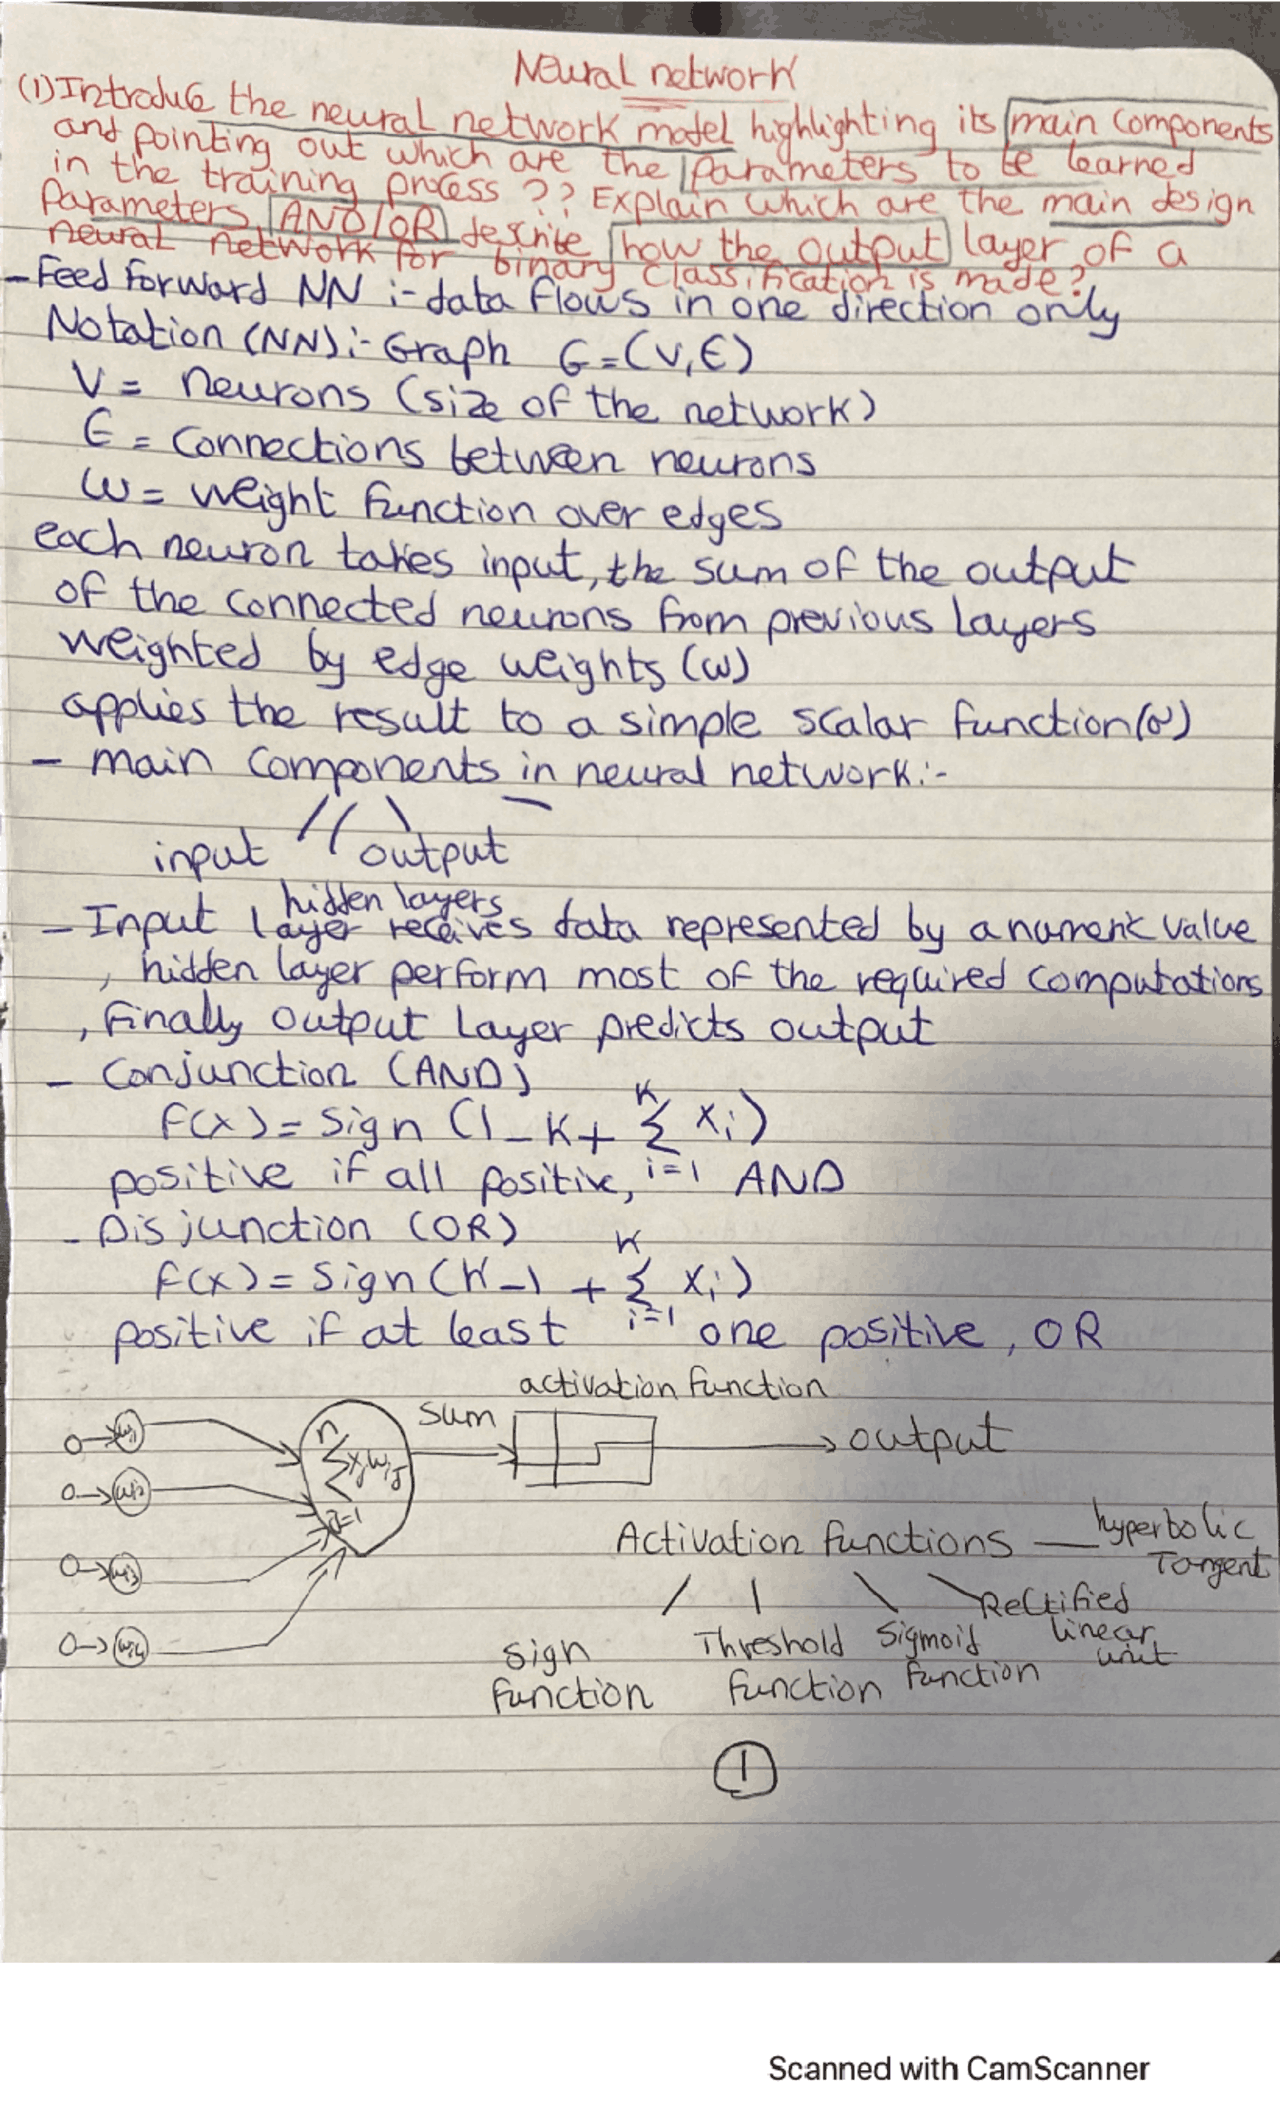 Neural network
(1) Introduce the neural network model highlighting its main components
and pointing out which are the parameters to be learned
in the training process ?? Explain which are the main design
Parameters AND/OR describe how the output layer of a
neural network for binary classification is made?
- Feed forward NN :- data flows in one direction only
Notation (NN):- Graph G=(V,E)
V = neurons (size of the network)
E = Connections between neurons
ω = weight function over edges
each neuron takes input, the sum of the output
of the connected neurons from previous layers
weighted by edge weights (ω)
applies the result to a simple scalar function(σ)
- main components in neural network:-
input output
hidden layers
- Input layer receives data represented by a numeric value
, hidden layer perform most of the required computations
, Finally output layer predicts output
- Conjunction (AND)
F(x) = Sign (1 - K + Σ xi)
K
i=1
positive if all positive, AND
- Disjunction (OR)
F(x) = Sign (K - 1 + Σ xi)
K
i=1
positive if at least one positive, OR
activation function
Sum
output
n
Σ xj wij
j=1
Activation functions — hyperbolic
Tangent
Rectified
linear
unit
sign
function
Threshold
function
Sigmoid
function
1
Scanned with CamScanner